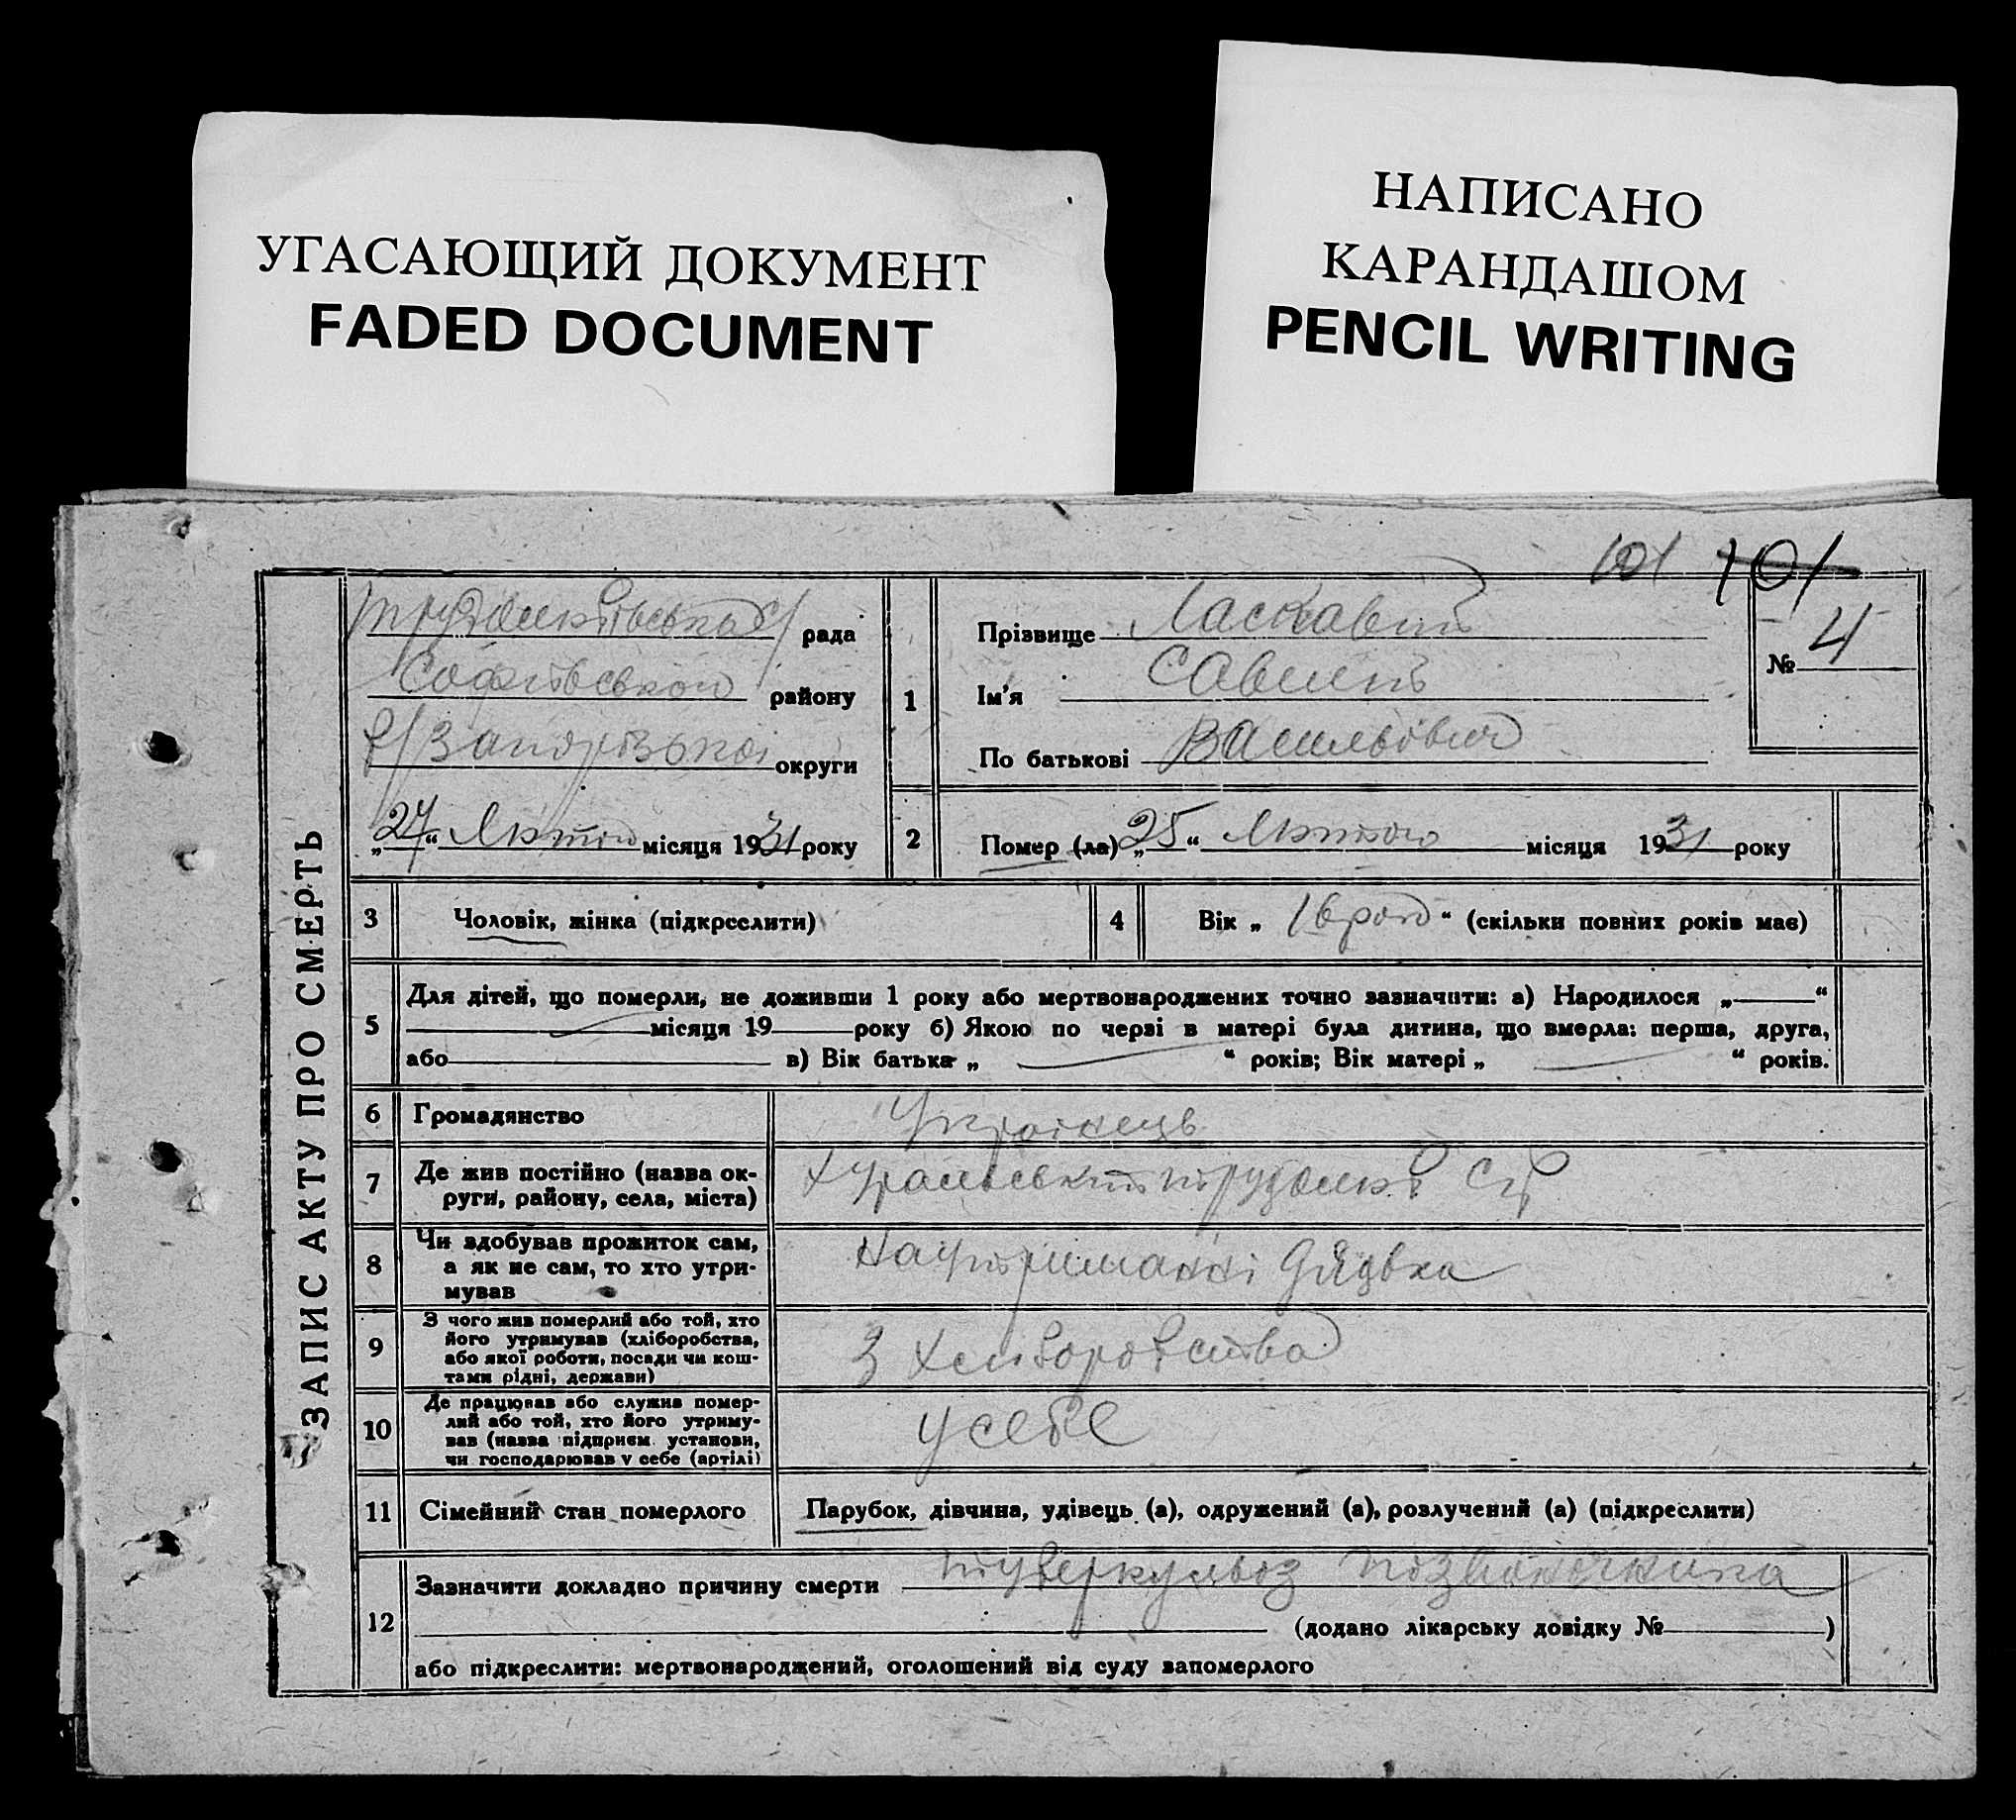 УГАСАЮЩИЙ ДОКУМЕНТ
FADED DOCUMENT
НАПИСАНО
КАРАНДАШОМ
PENCIL WRITING
101 101
ЗАПИС АКТУ ПРО СМЕРТЬ
рада
Софіївського району
округи
„27“ Лютого місяця 1931 року
1
Прізвище Ласкавий
Ім'я Савелій
По батькові Васильович
№ 4
2 Помер (ла) „25“ Лютого місяця 1931 року
3 Чоловік, жінка (підкреслити)
4 Вік „ “ (скільки повних років має)
5 Для дітей, що померли, не доживши 1 року або мертвонароджених точно зазначити: а) Народилося „ “
місяця 19 року б) Якою по черзі в матері була дитина, що вмерла: перша, друга,
або в) Вік батька „ “ років; Вік матері „ “ років.
6 Громадянство Українець
7 Де жив постійно (назва ок-
руги, району, села, міста)
8 Чи здобував прожиток сам,
а як не сам, то хто утри-
мував
На утриманні Дядька
9 З чого жив померлий або той, хто
його утримував (хліборобства,
або якої роботи, посади чи кош-
тами рідні, держави)
З Хліборобства
10 Де працював або служив помер-
лий або той, хто його утриму-
вав (назва підприєм. установи,
чи господарював у себе (артілі)
у себе
11 Сімейний стан померлого Парубок, дівчина, удівець (а), одружений (а), розлучений (а) (підкреслити)
12 Зазначити докладно причину смерти туберкульоз позвоночника
(додано лікарську довідку № )
або підкреслити: мертвонароджений, оголошений від суду запомерлого